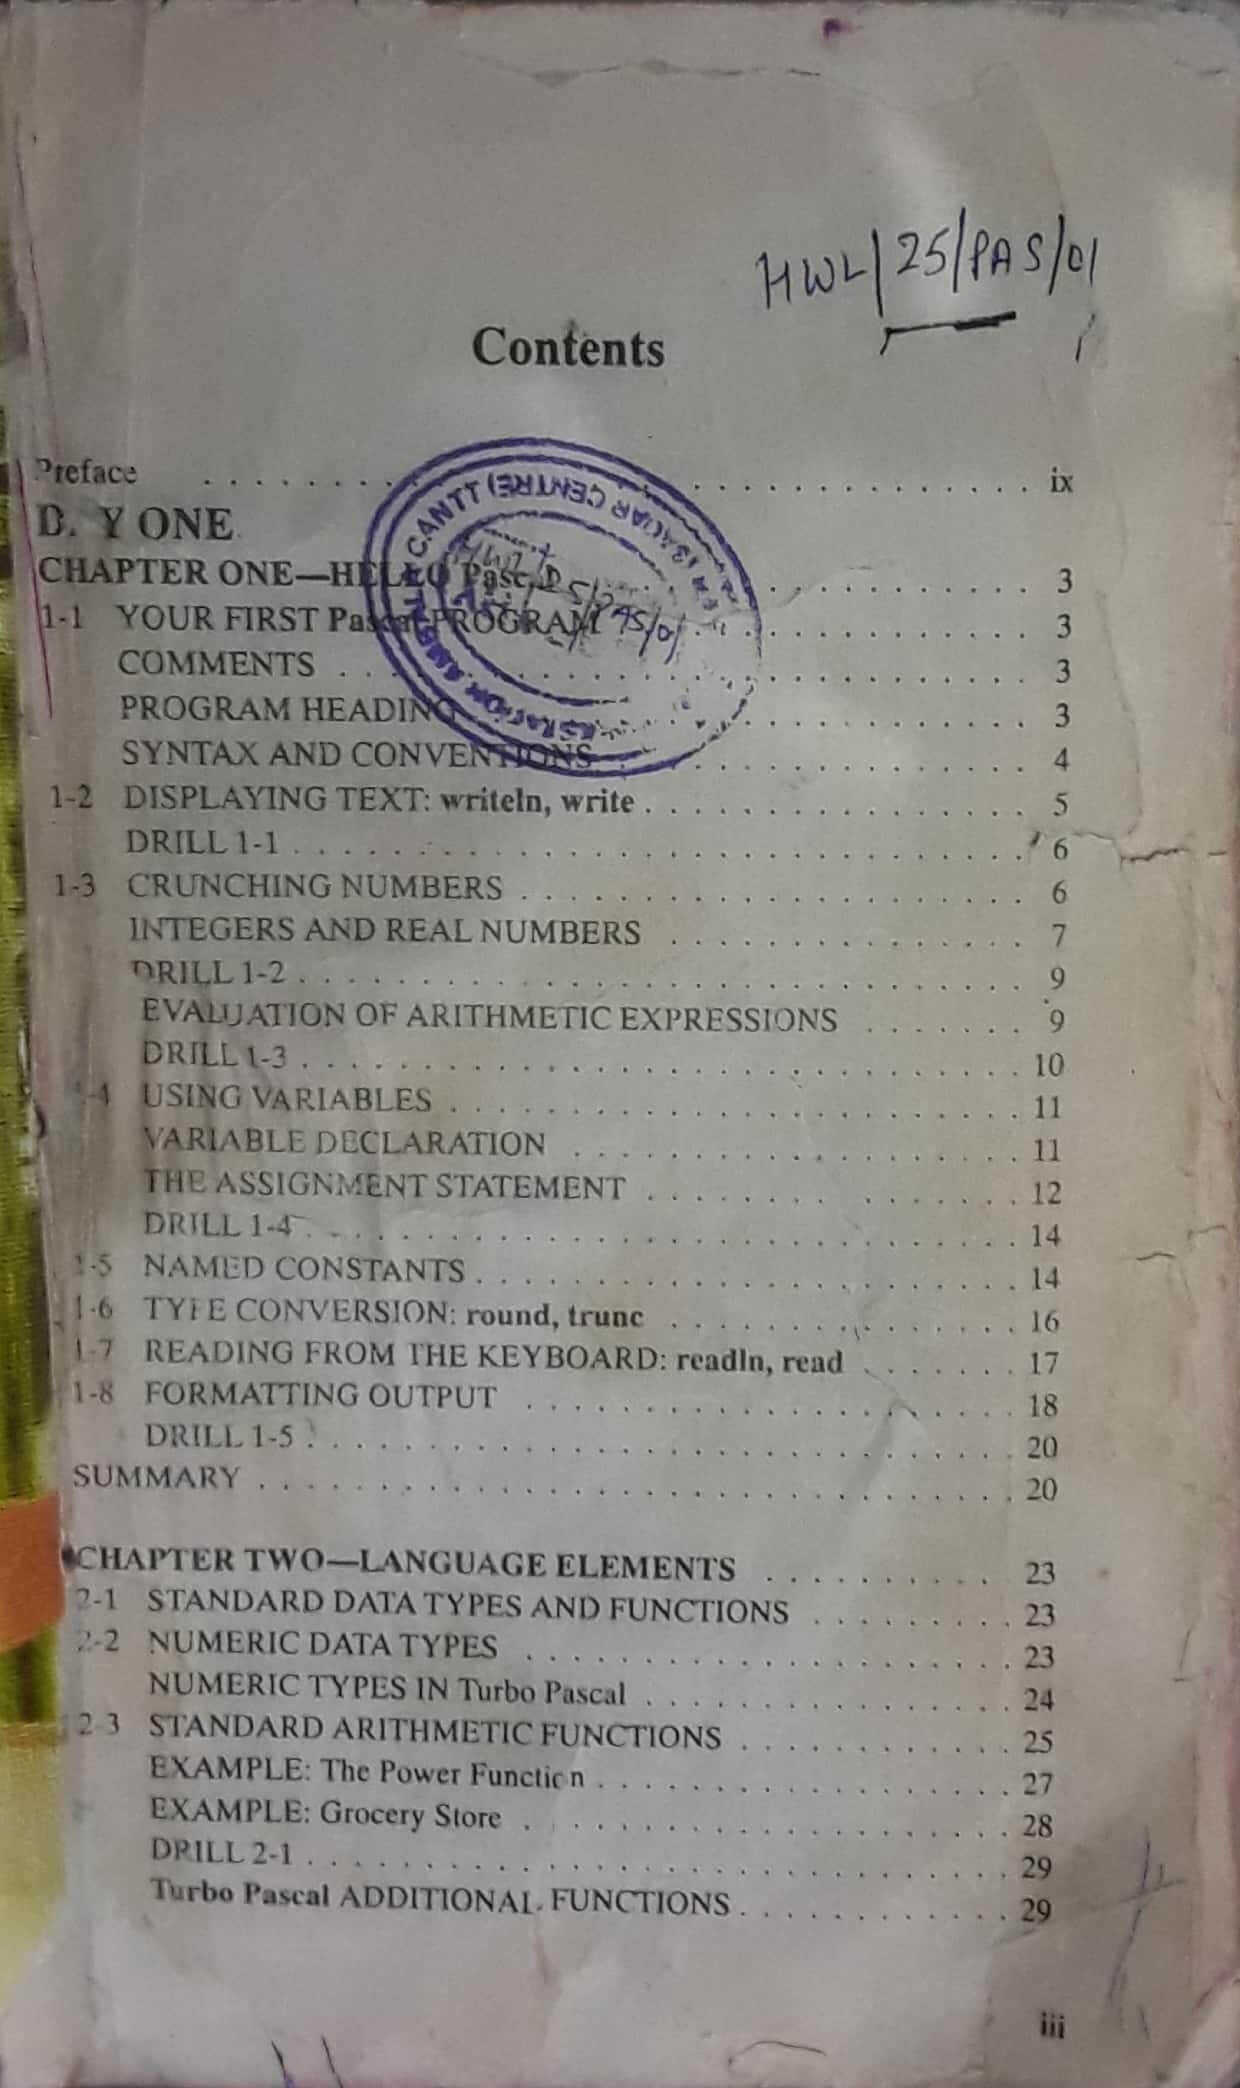 HWL/25/PAS/01
Contents
Preface . . . . . . . . . . . . . . . . . . . . ix
D. Y ONE
CHAPTER ONE—HELLO Pascal . . . . . . . . . . 3
1-1 YOUR FIRST Pascal PROGRAM . . . . . . . . . . 3
COMMENTS . . . . . . . . . . . . . . . . . . . . 3
PROGRAM HEADING . . . . . . . . . . . . . . . 3
SYNTAX AND CONVENTIONS . . . . . . . . . . . . 4
1-2 DISPLAYING TEXT: writeln, write . . . . . . . . . . . . 5
DRILL 1-1 . . . . . . . . . . . . . . . . . . . . 6
1-3 CRUNCHING NUMBERS . . . . . . . . . . . . . . . 6
INTEGERS AND REAL NUMBERS . . . . . . . . . . . . 7
DRILL 1-2 . . . . . . . . . . . . . . . . . . . . 9
EVALUATION OF ARITHMETIC EXPRESSIONS . . . . . . . 9
DRILL 1-3 . . . . . . . . . . . . . . . . . . . . 10
1-4 USING VARIABLES . . . . . . . . . . . . . . . . . . 11
VARIABLE DECLARATION . . . . . . . . . . . . . . 11
THE ASSIGNMENT STATEMENT . . . . . . . . . . . . 12
DRILL 1-4 . . . . . . . . . . . . . . . . . . . . 14
1-5 NAMED CONSTANTS . . . . . . . . . . . . . . . . . 14
1-6 TYPE CONVERSION: round, trunc . . . . . . . . . . . . 16
1-7 READING FROM THE KEYBOARD: readln, read . . . . . . . 17
1-8 FORMATTING OUTPUT . . . . . . . . . . . . . . . . 18
DRILL 1-5 . . . . . . . . . . . . . . . . . . . . 20
SUMMARY . . . . . . . . . . . . . . . . . . . . 20
CHAPTER TWO—LANGUAGE ELEMENTS . . . . . . . . . . 23
2-1 STANDARD DATA TYPES AND FUNCTIONS . . . . . . . . . 23
2-2 NUMERIC DATA TYPES . . . . . . . . . . . . . . . 23
NUMERIC TYPES IN Turbo Pascal . . . . . . . . . . . . 24
2-3 STANDARD ARITHMETIC FUNCTIONS . . . . . . . . . . . 25
EXAMPLE: The Power Function . . . . . . . . . . . . . 27
EXAMPLE: Grocery Store . . . . . . . . . . . . . . . 28
DRILL 2-1 . . . . . . . . . . . . . . . . . . . . 29
Turbo Pascal ADDITIONAL FUNCTIONS . . . . . . . . . . . 29
iii